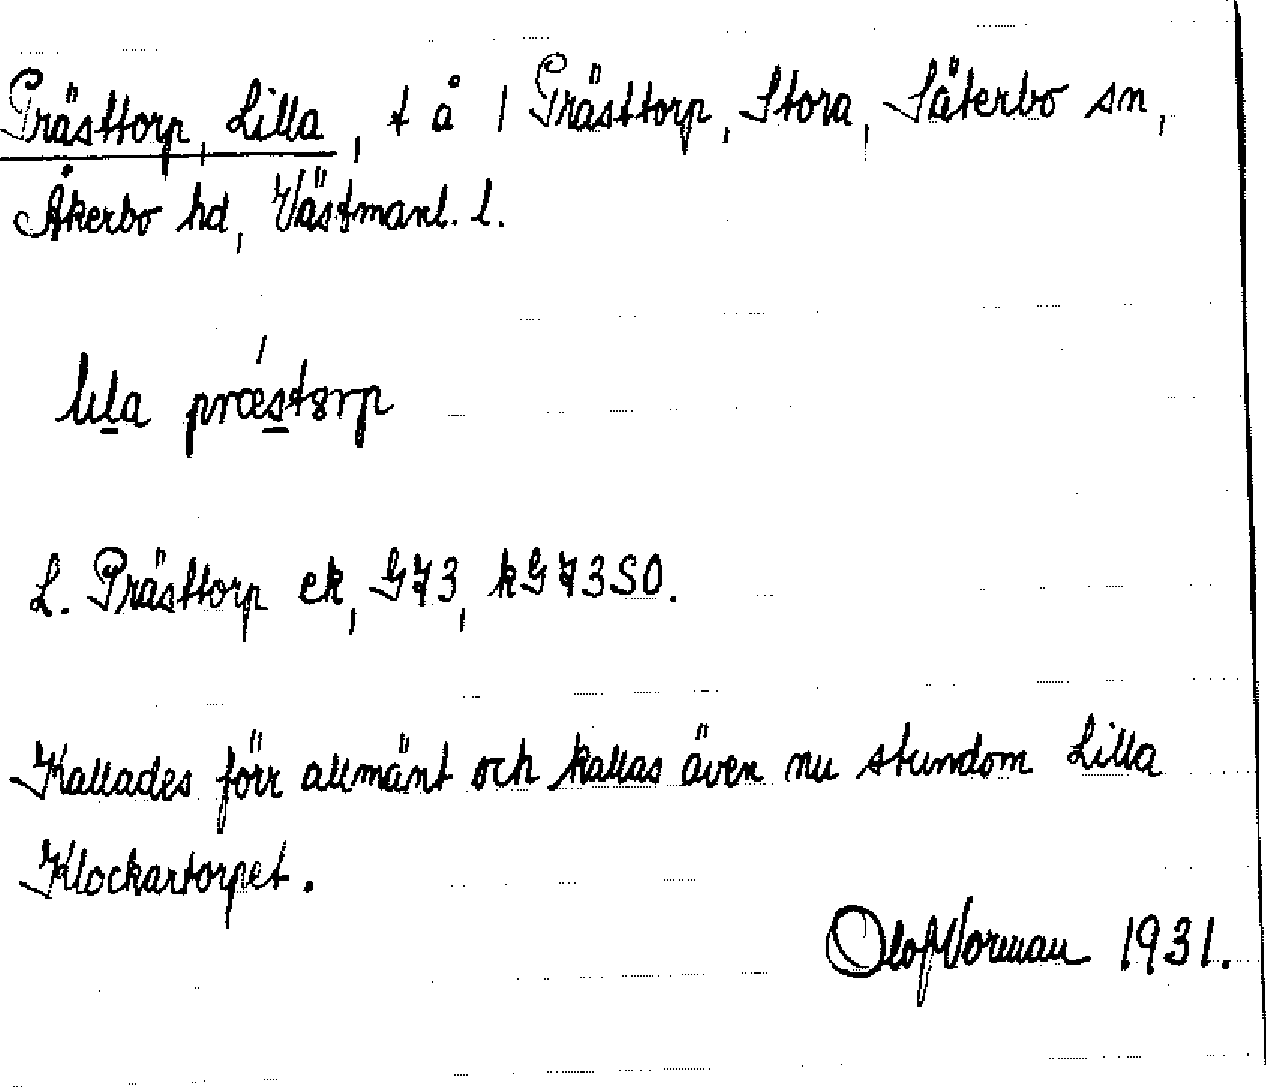 Prästtorp, Lilla, t å 1 Prästtorp, Stora, Säterbo sn,
Åkerbo hd, Västmanl. l.
lıla prǽstorp
L. Prästtorp ek, G73, kG73SO.
Kallades förr allmänt och kallas även nu stundom Lilla
Klockartorpet.
Olof Norman 1931.